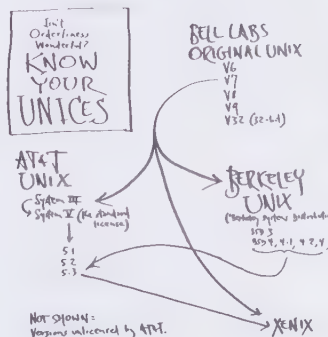 Isn't
Orderliness
Wonderful?
KNOW
YOUR
UNICES
BELL LABS
ORIGINAL UNIX
V6
V7
V8
V9
V32 (32-bit)
AT&T
UNIX
System III
System V (the standard
license)
5.1
5.2
5.3
BERKELEY
UNIX
(Berkeley System Distribution)
BSD 3
BSD 4, 4.1, 4.2, 4.
XENIX
NOT SHOWN:
Versions unlicensed by AT&T.